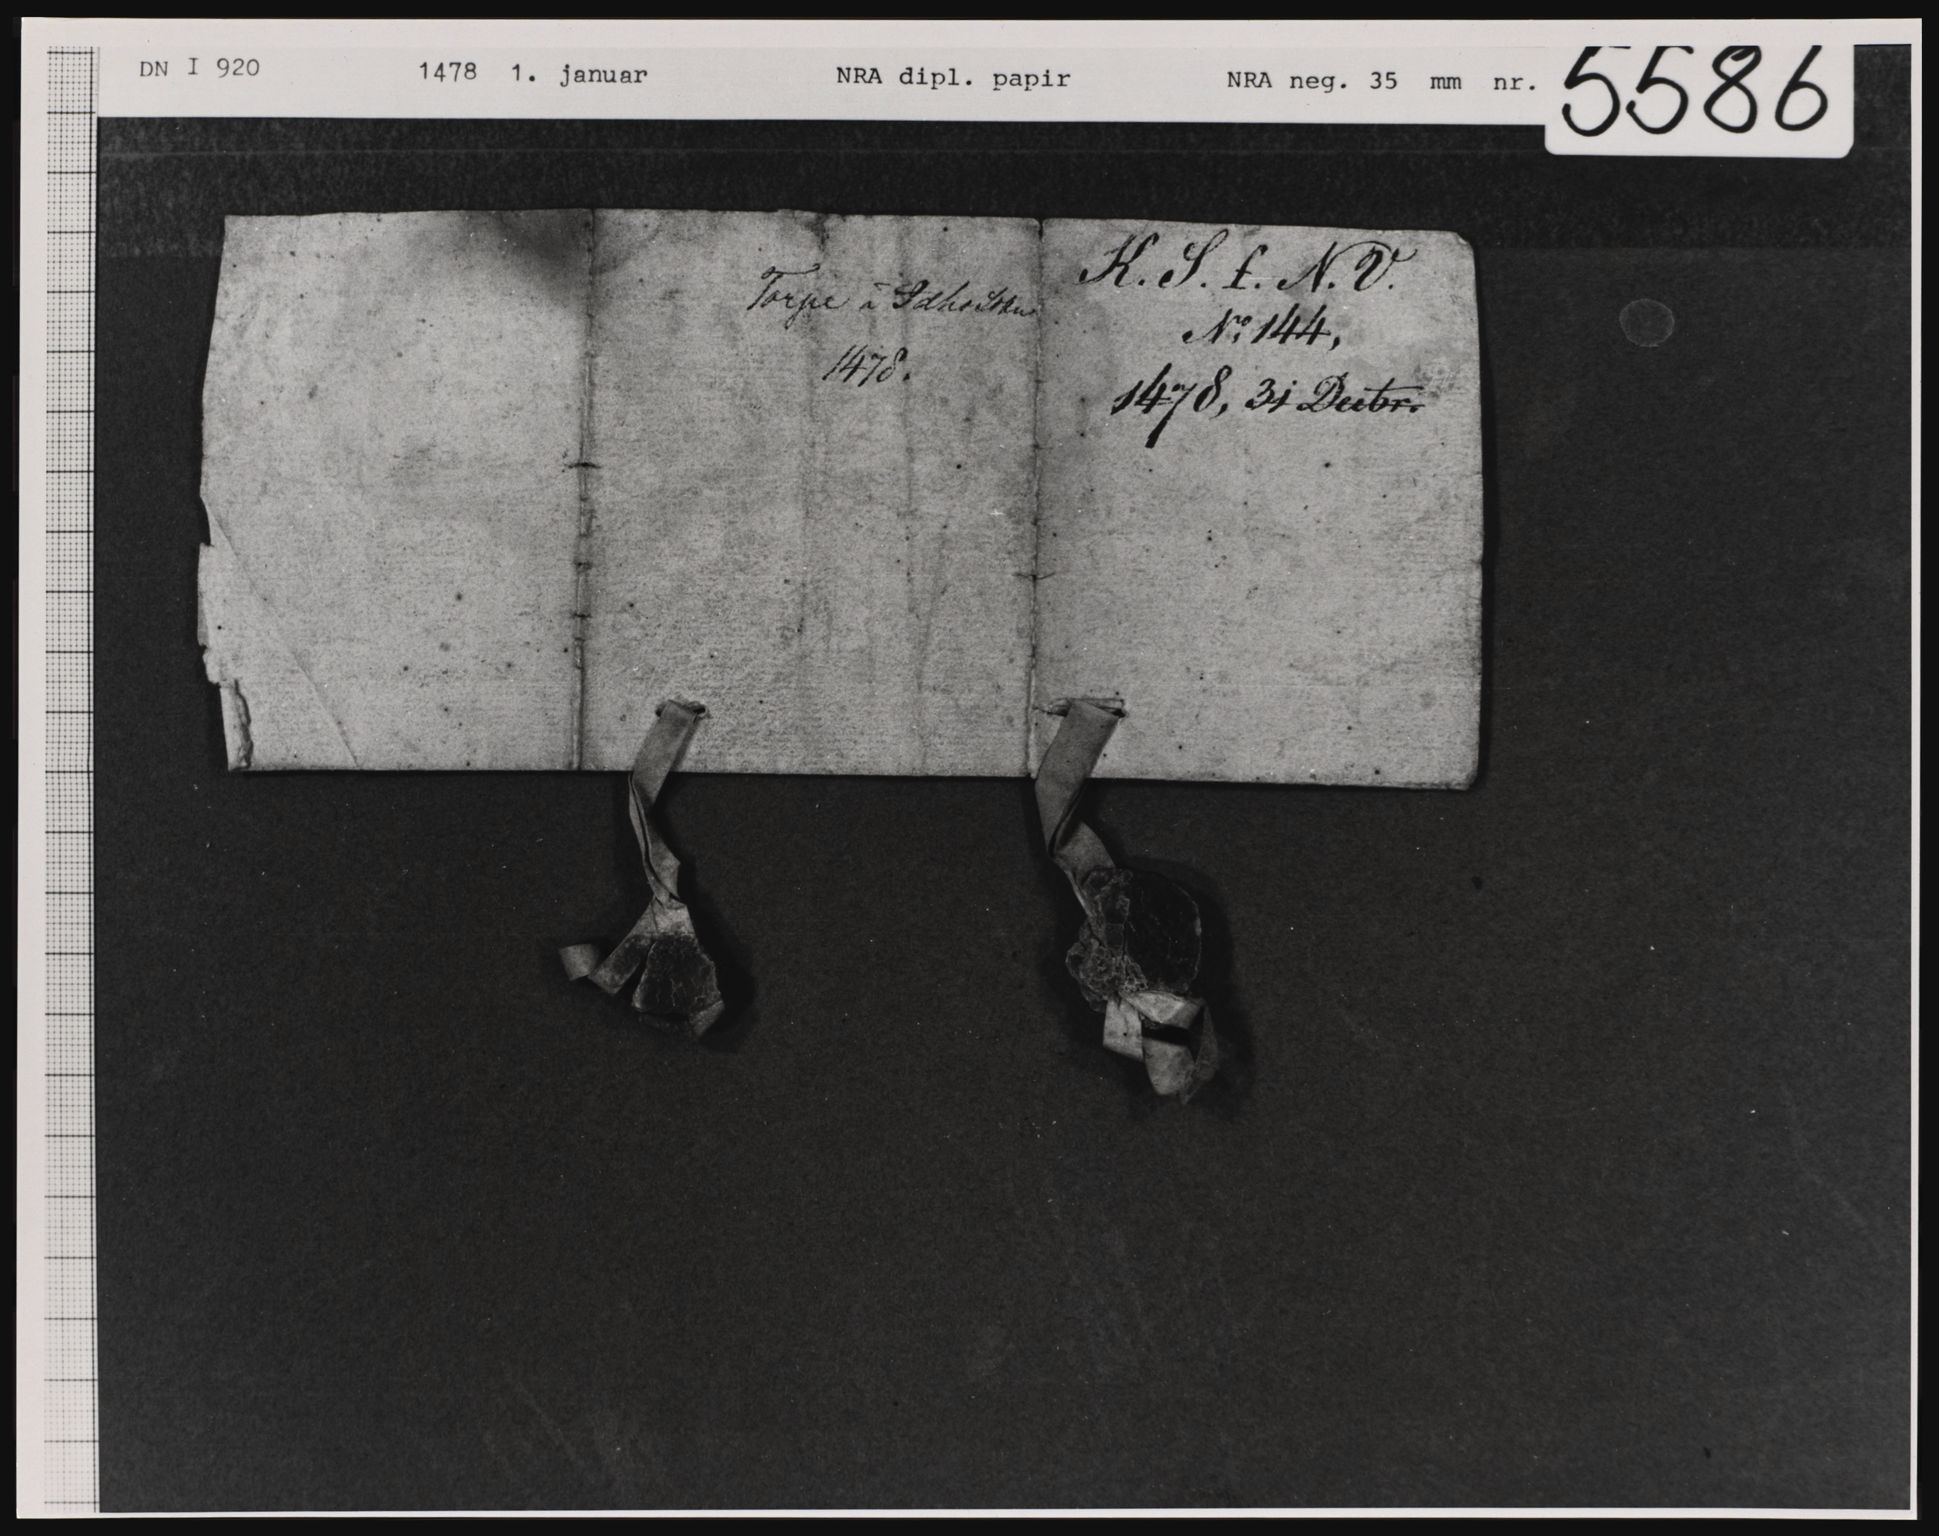 DN I 920 1478 1. januar NRA dipl. papir NRA neg. 35 mm nr. 5586
K. S. f. N. V.
No. 144,
1478, 31 Decbr.
Torpe i
1478.